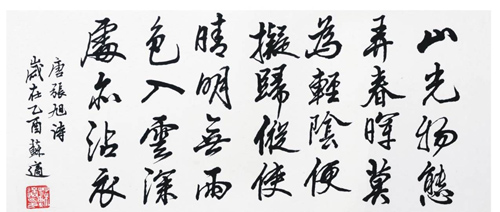 山光物態
弄春暉莫
為輕陰便
擬歸縱使
晴明無雨
色入雲深
處亦沾衣
唐張旭诗
歲在乙酉蘇